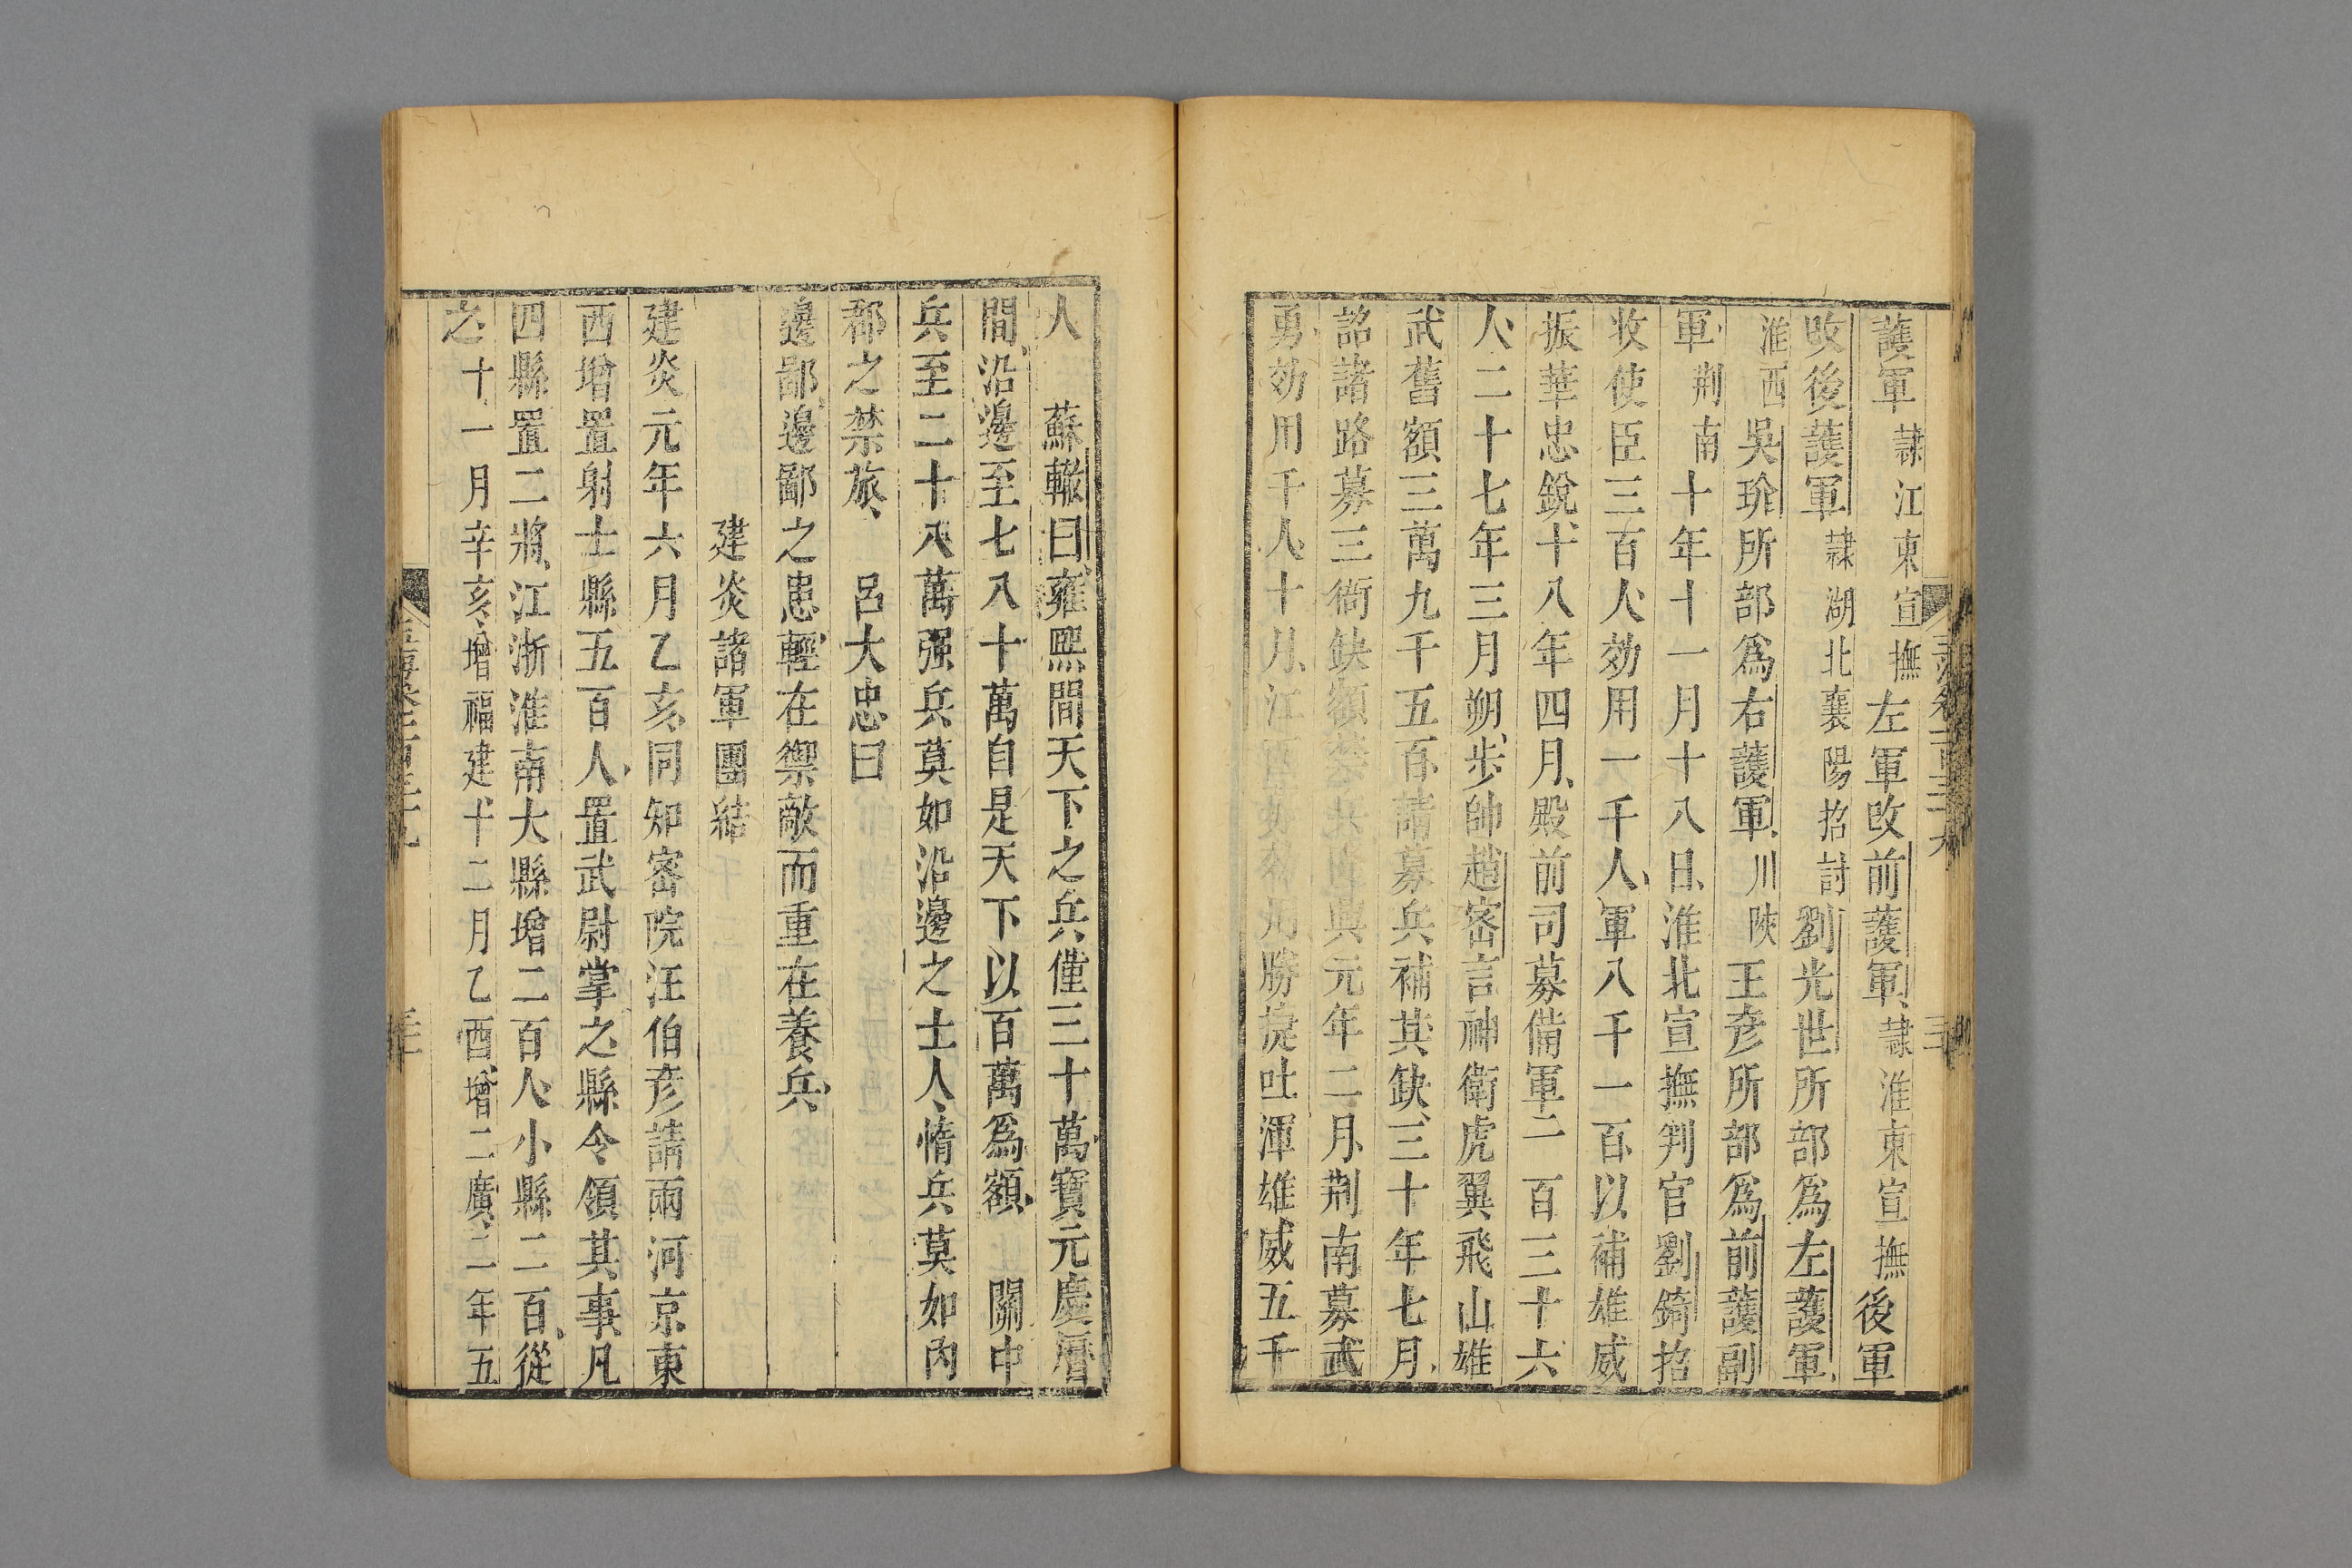 護軍隷江東宣撫左軍改前護軍隷淮東宣撫後軍
改後護軍隷湖北襄陽招討劉光世所部爲左護軍
淮西吳玠所部爲右護軍川陜王彦所部爲前護副
軍荆南十年十一月十八日淮北宣撫判官劉錡招
收使臣三百人効用一千人軍八千一百以補雄威
振華忠銳十八年四月殿前司募備軍二百三十六
人二十七年三月朔步帥趙密言神衛虎翼飛山雄
武舊額三萬九千五百請募兵補其缺三十年七月
詔諸路募三衙缺額 興元年二月荆南募武
勇効用千人十月江 勝捷吐渾雄威五千
人 蘇轍曰雍熙間天下之兵僅三十萬寶元慶曆
間沿邊至七八十萬自是天下以百萬爲額 關中
兵至二十八萬强兵莫如沿邊之士人惰兵莫如內
郡之禁旅 呂大忠曰
邊鄙邊鄙之患輕在禦敵而重在養兵
建炎諸軍團結
建炎元年六月乙亥同知密院汪伯彦請兩河京東
西增置射士縣五百人置武尉掌之縣令領其事凡
四縣置二將江浙淮南大縣增二百人小縣二百從
之十一月辛亥增福建十二月乙酉增二廣二年五